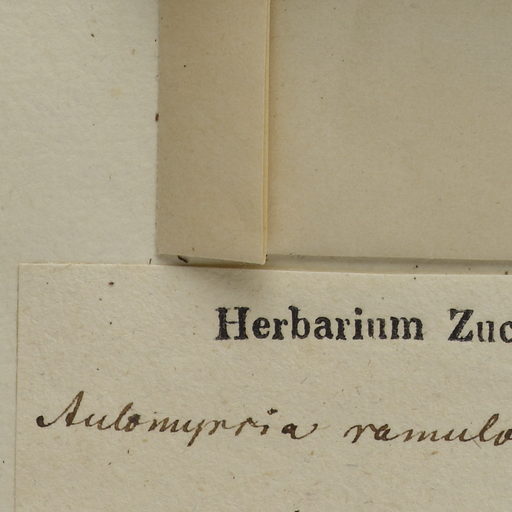 Herbarium Zuc
Aulomyrcia ramulo